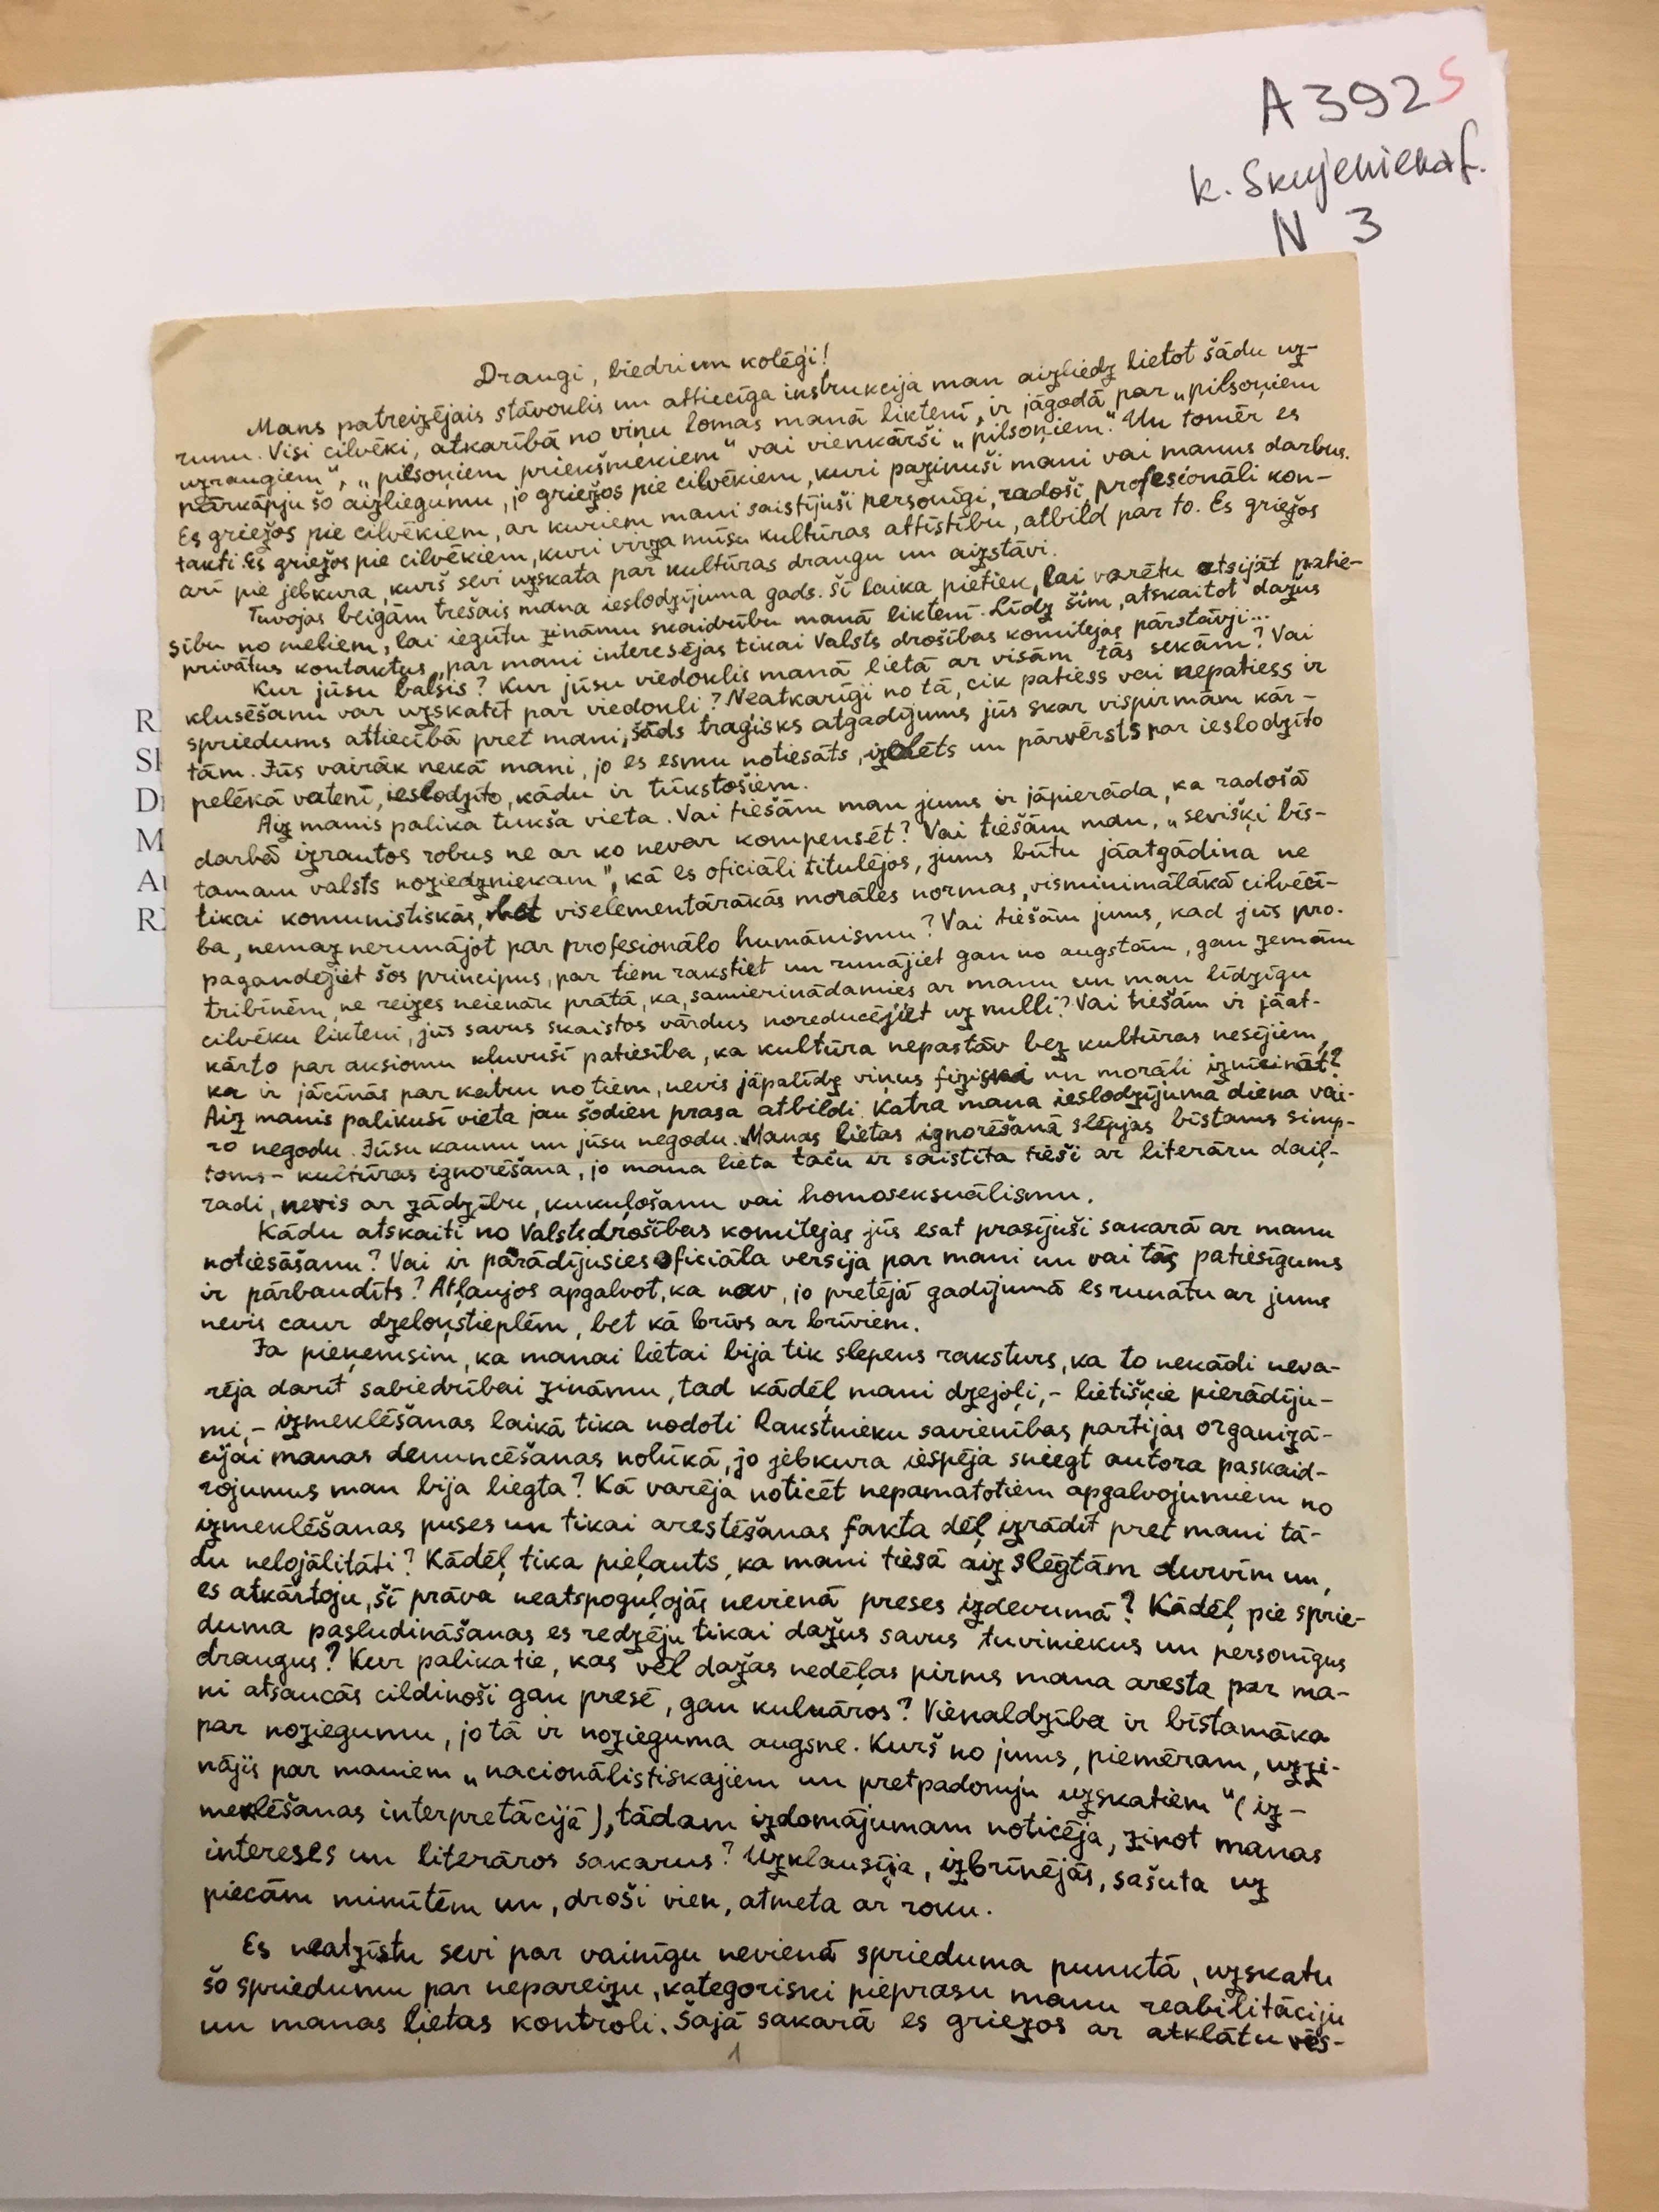 A 392 S
K. Skujenieka f.
N 3
R
Sk
D
M
A
R
Draugi, biedri un kolēģi!
Mans patreizējais stāvoklis un attiecīga instrukcija man aizliedz lietot šādu uz-
runu. Visi cilvēki, atkarībā no viņu lomas manā liktenī, ir jāgodā par „pilsoņiem
uzraugiem", „pilsoņiem priekšniekiem" vai vienkārši „pilsoņiem". Un tomēr es
pārkāpju šo aizliegumu, jo griežos pie cilvēkiem, kuri pazinuši mani vai manus darbus.
Es griežos pie cilvēkiem, ar kuriem mani saistījuši personīgi, radoši, profesionāli kon-
takti. Es griežos pie cilvēkiem, kuri virza mūsu kultūras attīstību, atbild par to. Es griežos
arī pie jebkura, kurš sevi uzskata par kultūras draugu un aizstāvi.
Tuvojas beigām trešais mana ieslodzījuma gads. Šī laika pietiek, lai varētu atsijāt patie-
sību no meliem, lai iegūtu zināmu skaidrību manā liktenī. Līdz šim, atskaitot dažus
privātus kontaktus, par mani interesējas tikai Valsts drošības komitejas pārstāvji...
Kur jūsu balsis? Kur jūsu viedoklis manā lietā ar visām tās sekām? Vai
klusēšanu var uzskatīt par viedokli? Neatkarīgi no tā, cik patiess vai nepatiess ir
spriedums attiecībā pret mani, šāds traģisks atgadījums jūs skar vispirmām kār-
tām. Jūs vairāk nekā mani, jo es esmu notiesāts, izolēts un pārvērsts par ieslodzīto
pelēkā vatenī, ieslodzīto, kādu ir tūkstošiem.
Aiz manis palika tukša vieta. Vai tiešām man jums ir jāpierāda, ka radošā
darbā izrautos robus ne ar ko nevar kompensēt? Vai tiešām man, „sevišķi bīs-
tamam valsts noziedzniekam", kā es oficiāli titulējos, jums būtu jāatgādina ne
tikai komunistiskās, bet viselementārākās morāles normas, visminimālākā cilvēcī-
ba, nemaz nerunājot par profesionālo humānismu? Vai tiešām jums, kad jūs pro-
pagandējiet šos principus, par tiem rakstiet un runājiet gan no augstām, gan zemām
tribīnēm, ne reizes neienāk prātā, ka, samierinādamies ar manu un man līdzīgu
cilvēku likteni, jūs savus skaistos vārdus noreducējiet uz nulli? Vai tiešām ir jāat-
kārto par aksiomu kļuvuši patiesība, ka kultūra nepastāv bez kultūras nesējiem,
ka ir jācīnās par katru no tiem, nevis jāpalīdz viņus fiziski un morāli iznīcināt?
Aiz manis palikusī vieta jau šodien prasa atbildi. Katra mana ieslodzījuma diena vai-
ro negodu. Jūsu kaunu un jūsu negodu. Manas lietas ignorēšanā slēpjas bīstams simp-
toms - kultūras ignorēšana, jo mana lieta taču ir saistīta tieši ar literāru daiļ-
radi, nevis ar zādzību, kukuļošanu vai homoseksuālismu.
Kādu atskaiti no Valsts drošības komitejas jūs esat prasījuši sakarā ar manu
notiesāšanu? Vai ir parādījusies oficiāla versija par mani un vai tās patiesīgums
ir pārbaudīts? Atļaujos apgalvot, ka nav, jo pretējā gadījumā es runātu ar jums
nevis caur dzeloņstieplēm, bet kā brīvs ar brīviem.
Ja pieņemsim, ka manai lietai bija tik slepens raksturs, ka to nekādi neva-
rēja darīt sabiedrībai zināmu, tad kādēļ mani dzejoļi, - lietišķie pierādīju-
mi, - izmeklēšanas laikā tika nodoti Rakstnieku savienības partijas organizā-
cijai manas denuncēšanas nolūkā, jo jebkura iespēja sniegt autora paskaid-
rojumus man bija liegta? Kā varēja noticēt nepamatotiem apgalvojumiem no
izmeklēšanas puses un tikai arestēšanas fakta dēļ izrādīt pret mani tā-
du nelojālitāti? Kādēļ tika pieļauts, ka mani tiesā aiz slēgtām durvīm un,
es atkārtoju, šī prāva neatspoguļojās nevienā preses izdevumā? Kādēļ pie sprie-
duma pasludināšanas es redzēju tikai dažus savus tuviniekus un personīgus
draugus? Kur palika tie, kas vēl dažas nedēļas pirms mana aresta par ma-
ni atsaucās cildinoši gan presē, gan kuluāros? Vienaldzība ir bīstamāka
par noziegumu, jo tā ir nozieguma augsne. Kurš no jums, piemēram, uzzi-
nājis par maniem „nacionālistiskajiem un pretpadomju uzskatiem" (iz-
meklēšanas interpretācijā), tādam izdomājumam noticēja, zinot manas
intereses un literāros sakarus? Uzklausīja, izbrīnējās, sašuta uz
piecām minūtēm un, droši vien, atmeta ar roku.
Es neatzīstu sevi par vainīgu nevienā sprieduma punktā, uzskatu
šo spriedumu par nepareizu, kategoriski pieprasu manu reabilitāciju
un manas lietas kontroli. Šajā sakarā es griežos ar atklātu vēs-
1